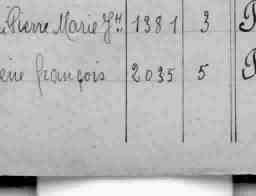 Pierre Marie Jh 1381 3
François 2035 5